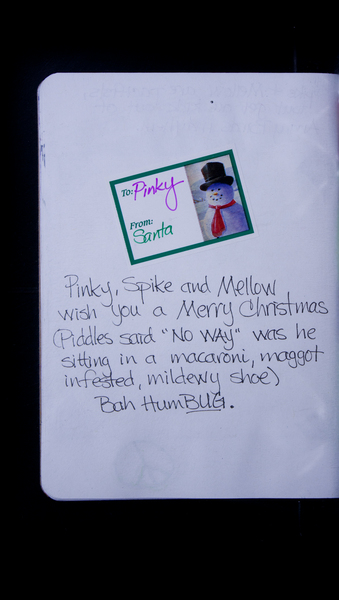 To: Pinky
From:
Santa
Pinky, Spike and Mellow
wish you a Merry Christmas
(Piddles said "NO WAY" was he
sitting in a macaroni, maggot
infested, mildewy shoe)
Bah HumBUG.